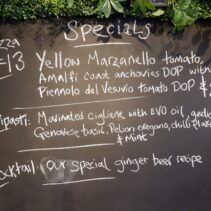 Specials
zza
£13 Yellow Marzanello tomato,
Amalfi coast anchovies DOP with
Piennolo del Vesuvio tomato DOP &
tipasti: Marinated cigliene with EVO oil, garlic
Genovese basil, Pelion oregano, chilli flakes
& Mint
cktail: Our special ginger beer recipe